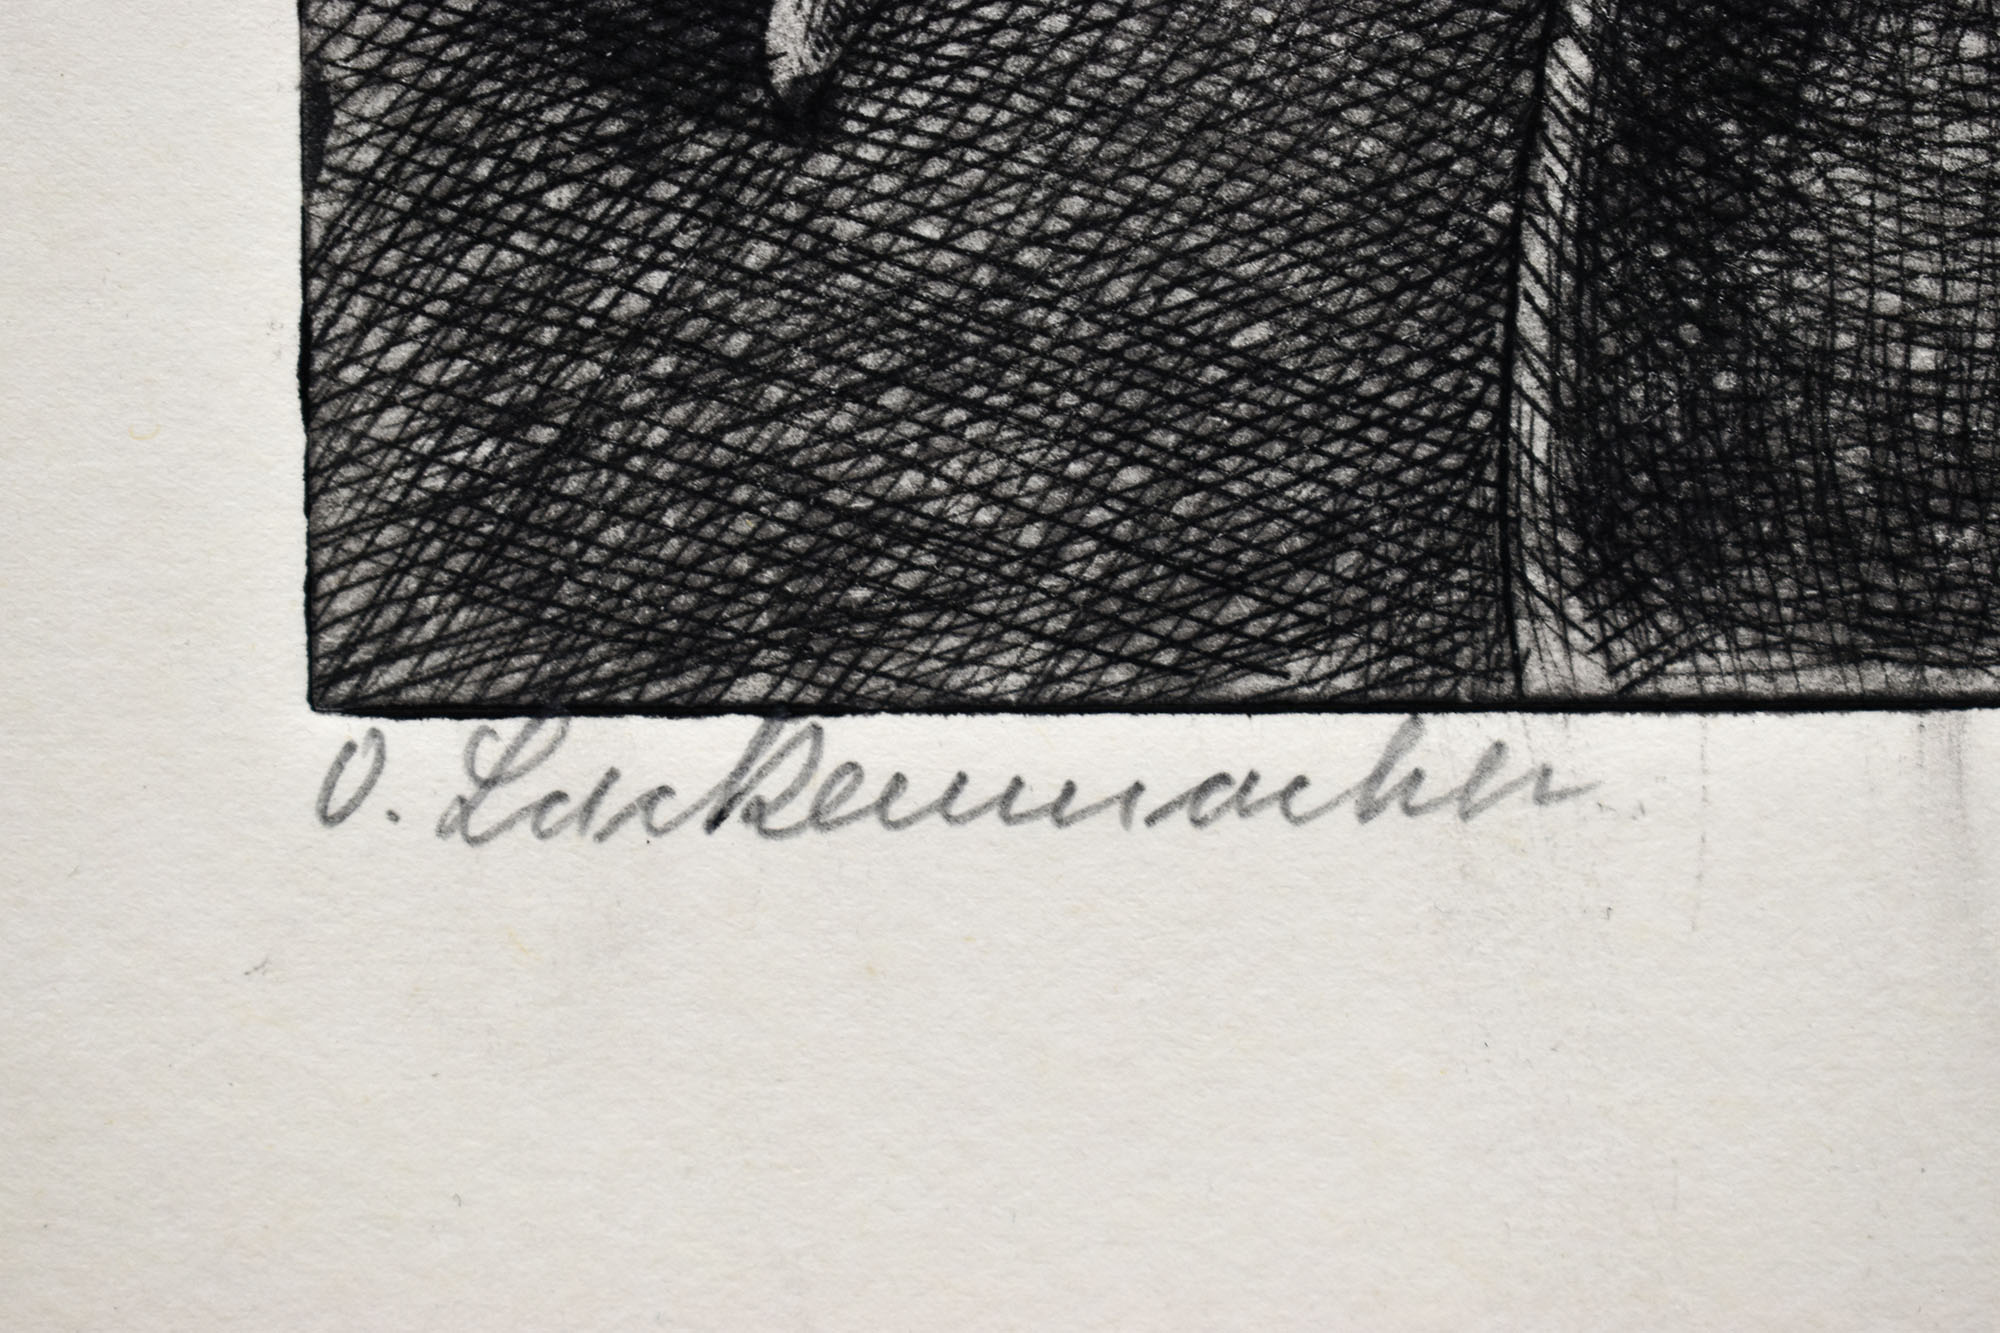 O. Lackenmacher